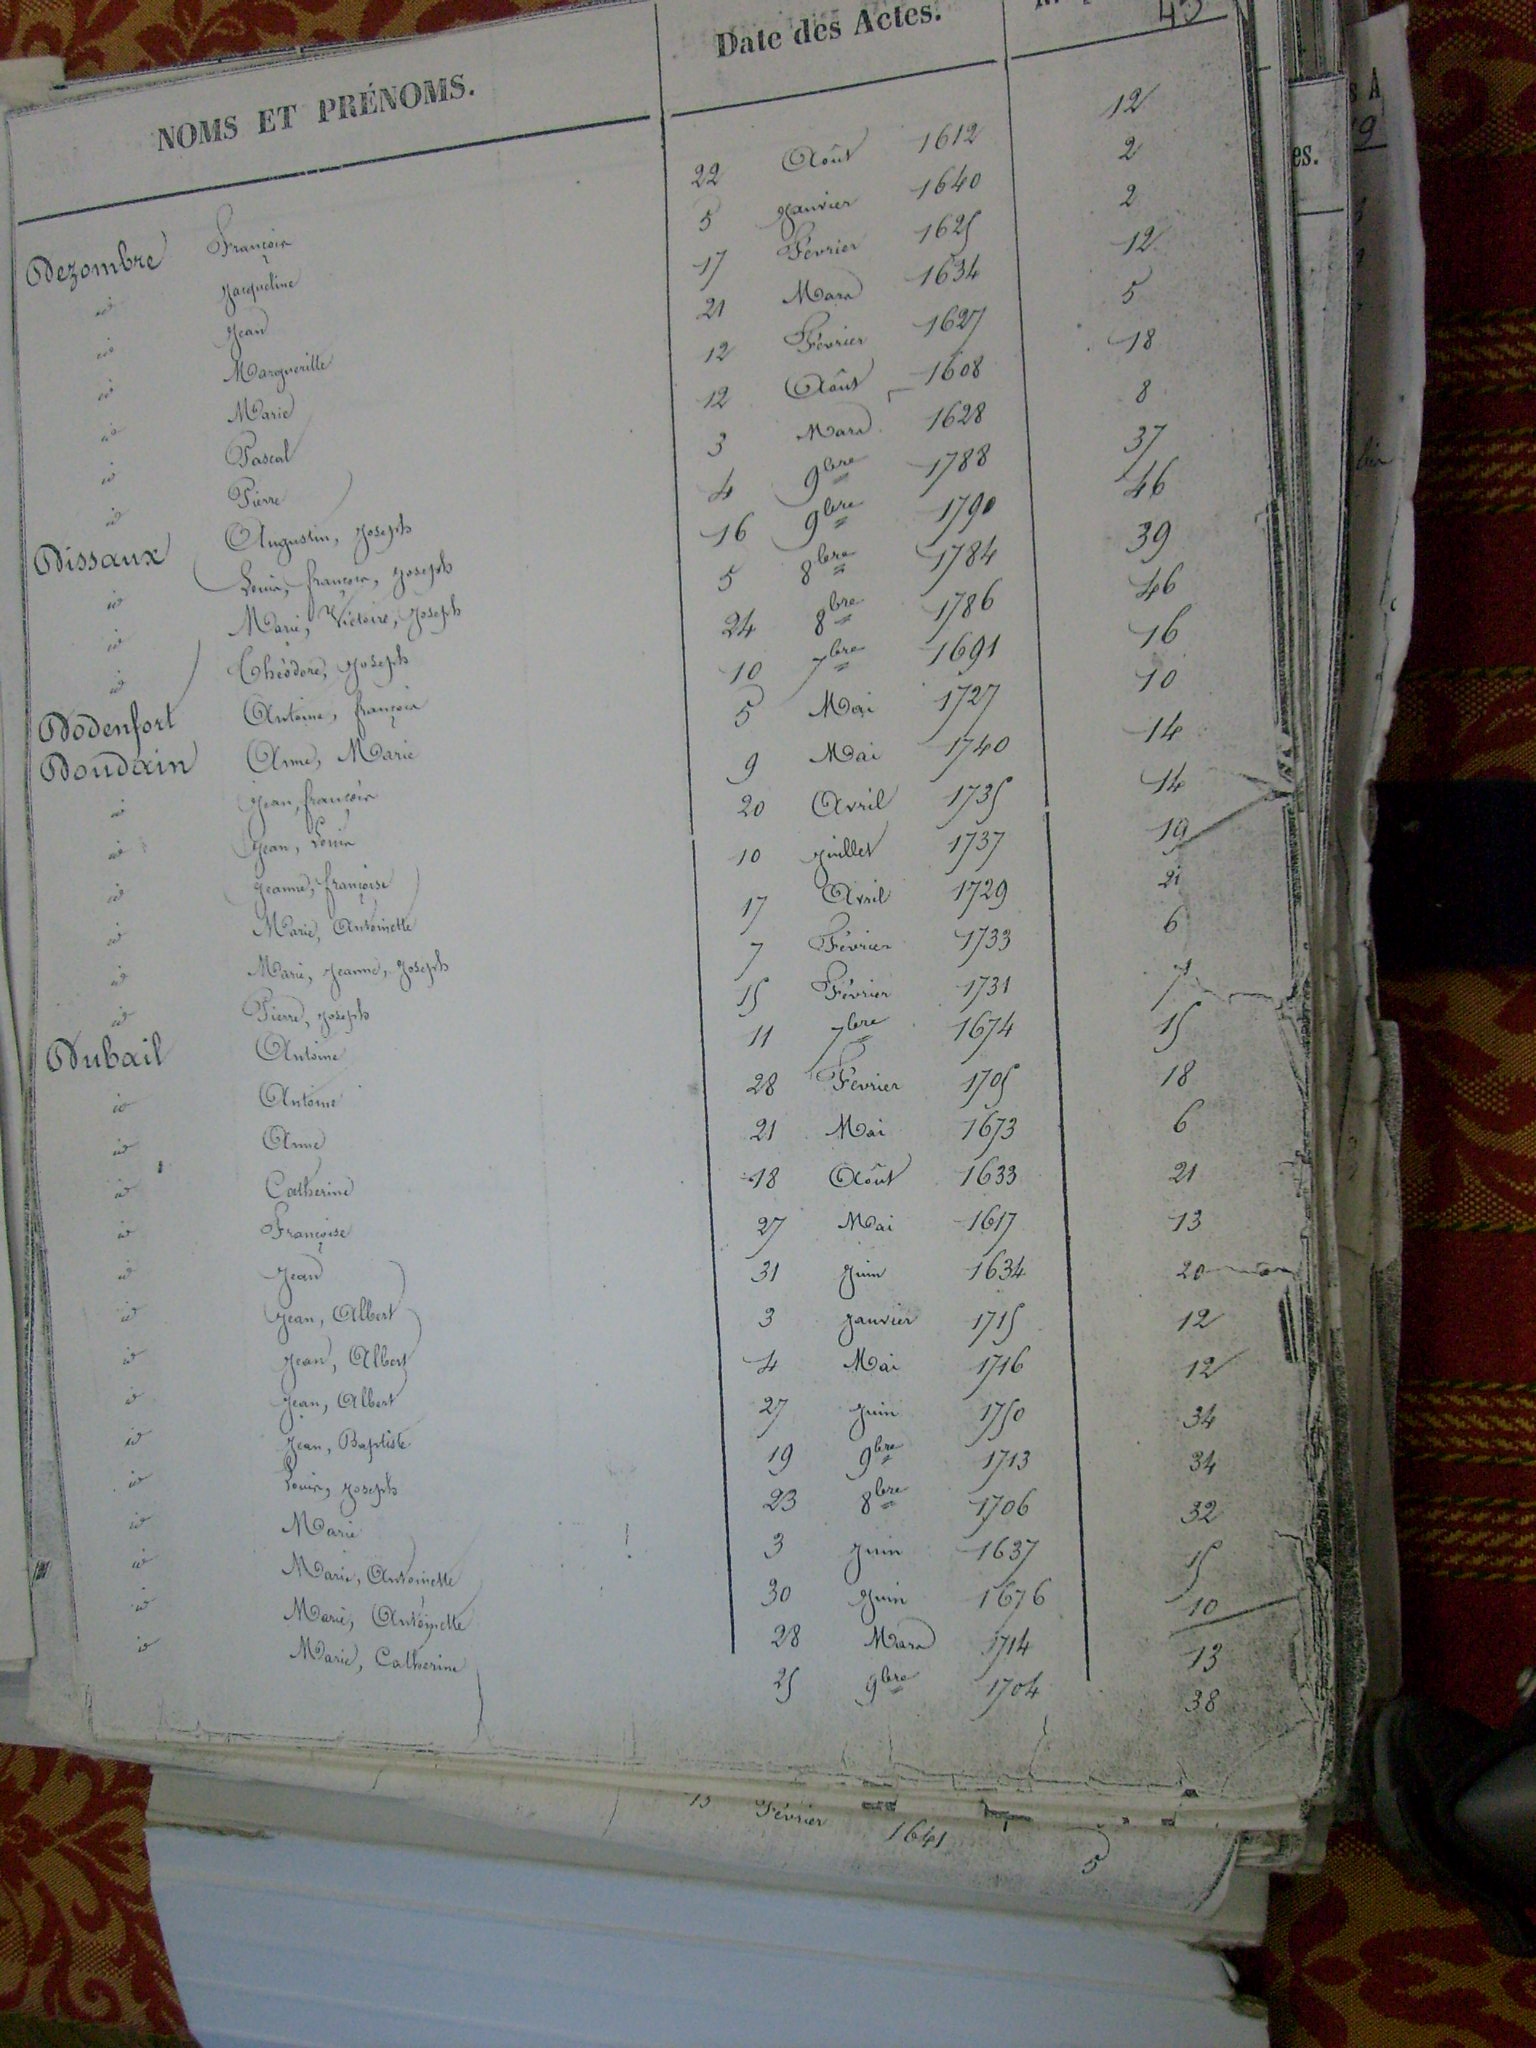 NOMS ET PRÉNOMS. Date des Actes. 43
Dezombre François 22 Août 1612 12
id Jacqueline 5 Janvier 1640 2
id Jean 17 Février 1625 2
id Margueritte 21 Mars 1634 12
id Marie 12 Février 1627 5
id Pascal 12 Août 1608 18
id Pierre 3 Mars 1628 8
Dissaux Augustin, Joseph 4 9bre 1788 37
id Louis, françois, Joseph 16 9bre 1790 46
id Marie, Victoire, Joseph 5 8bre 1784 39
id Théodore, Joseph 24 8bre 1786 46
Dodenfort Antoine, françois 10 7bre 1691 16
Doudain Anne, Marie 5 Mai 1727 10
id Jean, françois 9 Mai 1740 14
id Jean, Louis 20 Avril 1735 14
id Jeanne, françoise 10 Juillet 1737 19
id Marie, Antoinette 17 Avril 1729 21
id Marie, Jeanne, Joseph 7 Février 1733 6
id Pierre, Joseph 15 Février 1731 7
Dubail Antoine 11 7bre 1674 15
id Antoine 28 Février 1705 18
id Anne 21 Mai 1673 6
id Catherine 18 Août 1633 21
id Françoise 27 Mai 1617 13
id Jean 31 Juin 1634 20
id Jean, Albert 3 Janvier 1715 12
id Jean, Albert 4 Mai 1716 12
id Jean, Albert 27 Juin 1750 34
id Jean, Baptiste 19 9bre 1713 34
id Louis, Joseph 23 8bre 1706 32
id Marie 3 Juin 1637 15
id Marie, Antoinette 30 Juin 1676 10
id Marie, Antoinette 28 Mars 1714 13
id Marie, Catherine 25 9bre 1704 38
13 Février 1641 5
es.